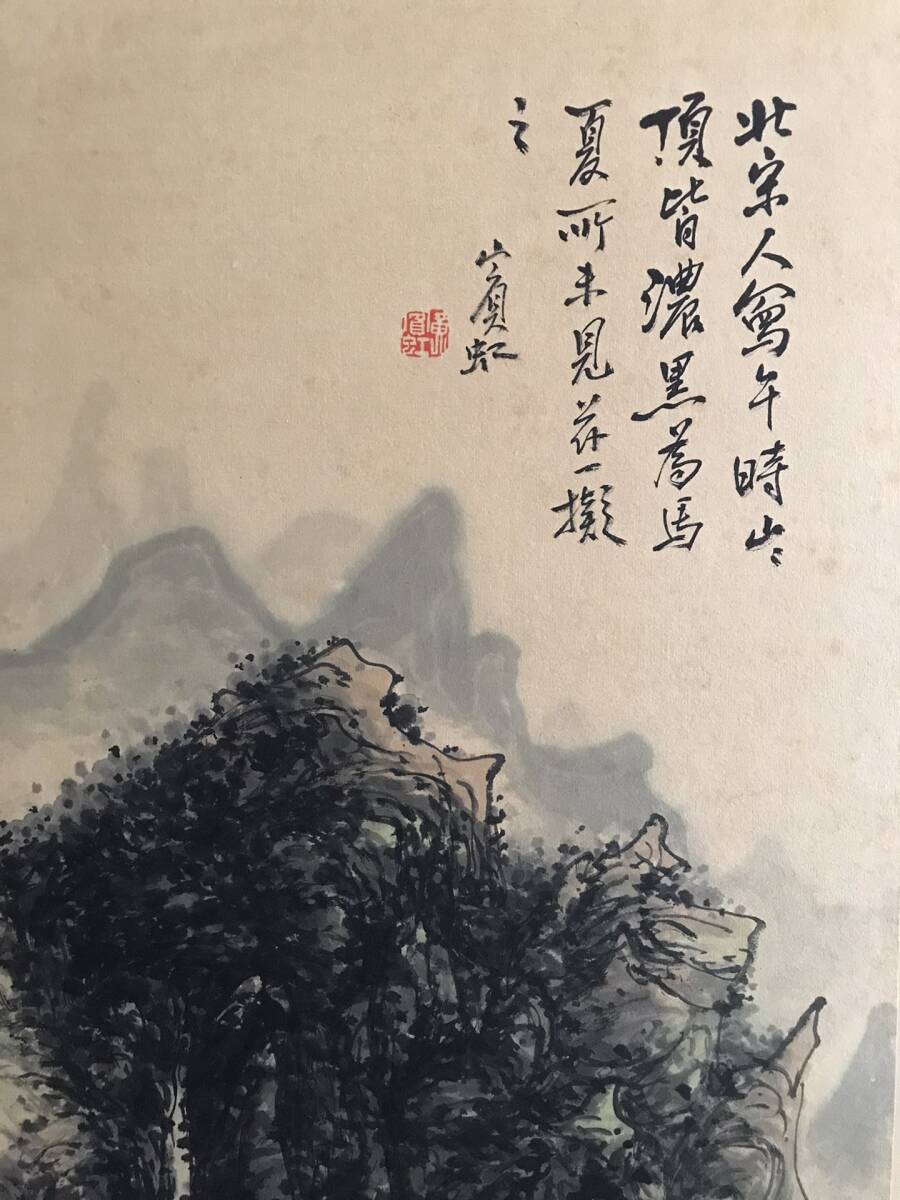 北宋人寫午時山
頂皆濃黑為馬
夏所未見茲一擬
之
賓虹
黃賓虹